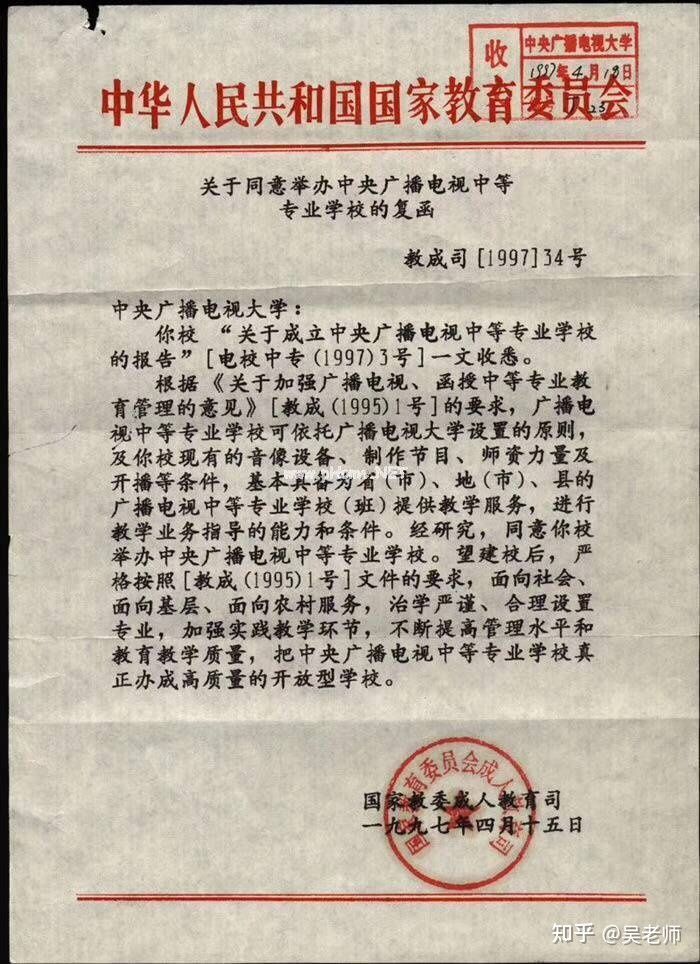 收 中央广播电视大学
1997年4月19日
中华人民共和国国家教育委员会
关于同意举办中央广播电视中等
专业学校的复函
教成司[1997]34号
中央广播电视大学：
你校“关于成立中央广播电视中等专业学校
的报告”[电校中专(1997)3号]一文收悉。
根据《关于加强广播电视、函授中等专业教
育管理的意见》[教成(1995)1号]的要求，广播电
视中等专业学校可依托广播电视大学设置的原则，
及你校现有的音像设备、制作节目、师资力量及
开播等条件，基本具备为省(市)、地(市)、县的
广播电视中等专业学校(班)提供教学服务，进行
教学业务指导的能力和条件。经研究，同意你校
举办中央广播电视中等专业学校。望建校后，严
格按照[教成(1995)1号]文件的要求，面向社会、
面向基层、面向农村服务，治学严谨、合理设置
专业，加强实践教学环节，不断提高管理水平和
教育教学质量，把中央广播电视中等专业学校真
正办成高质量的开放型学校。
国家教委成人教育司
一九九七年四月十五日
知乎 @吴老师